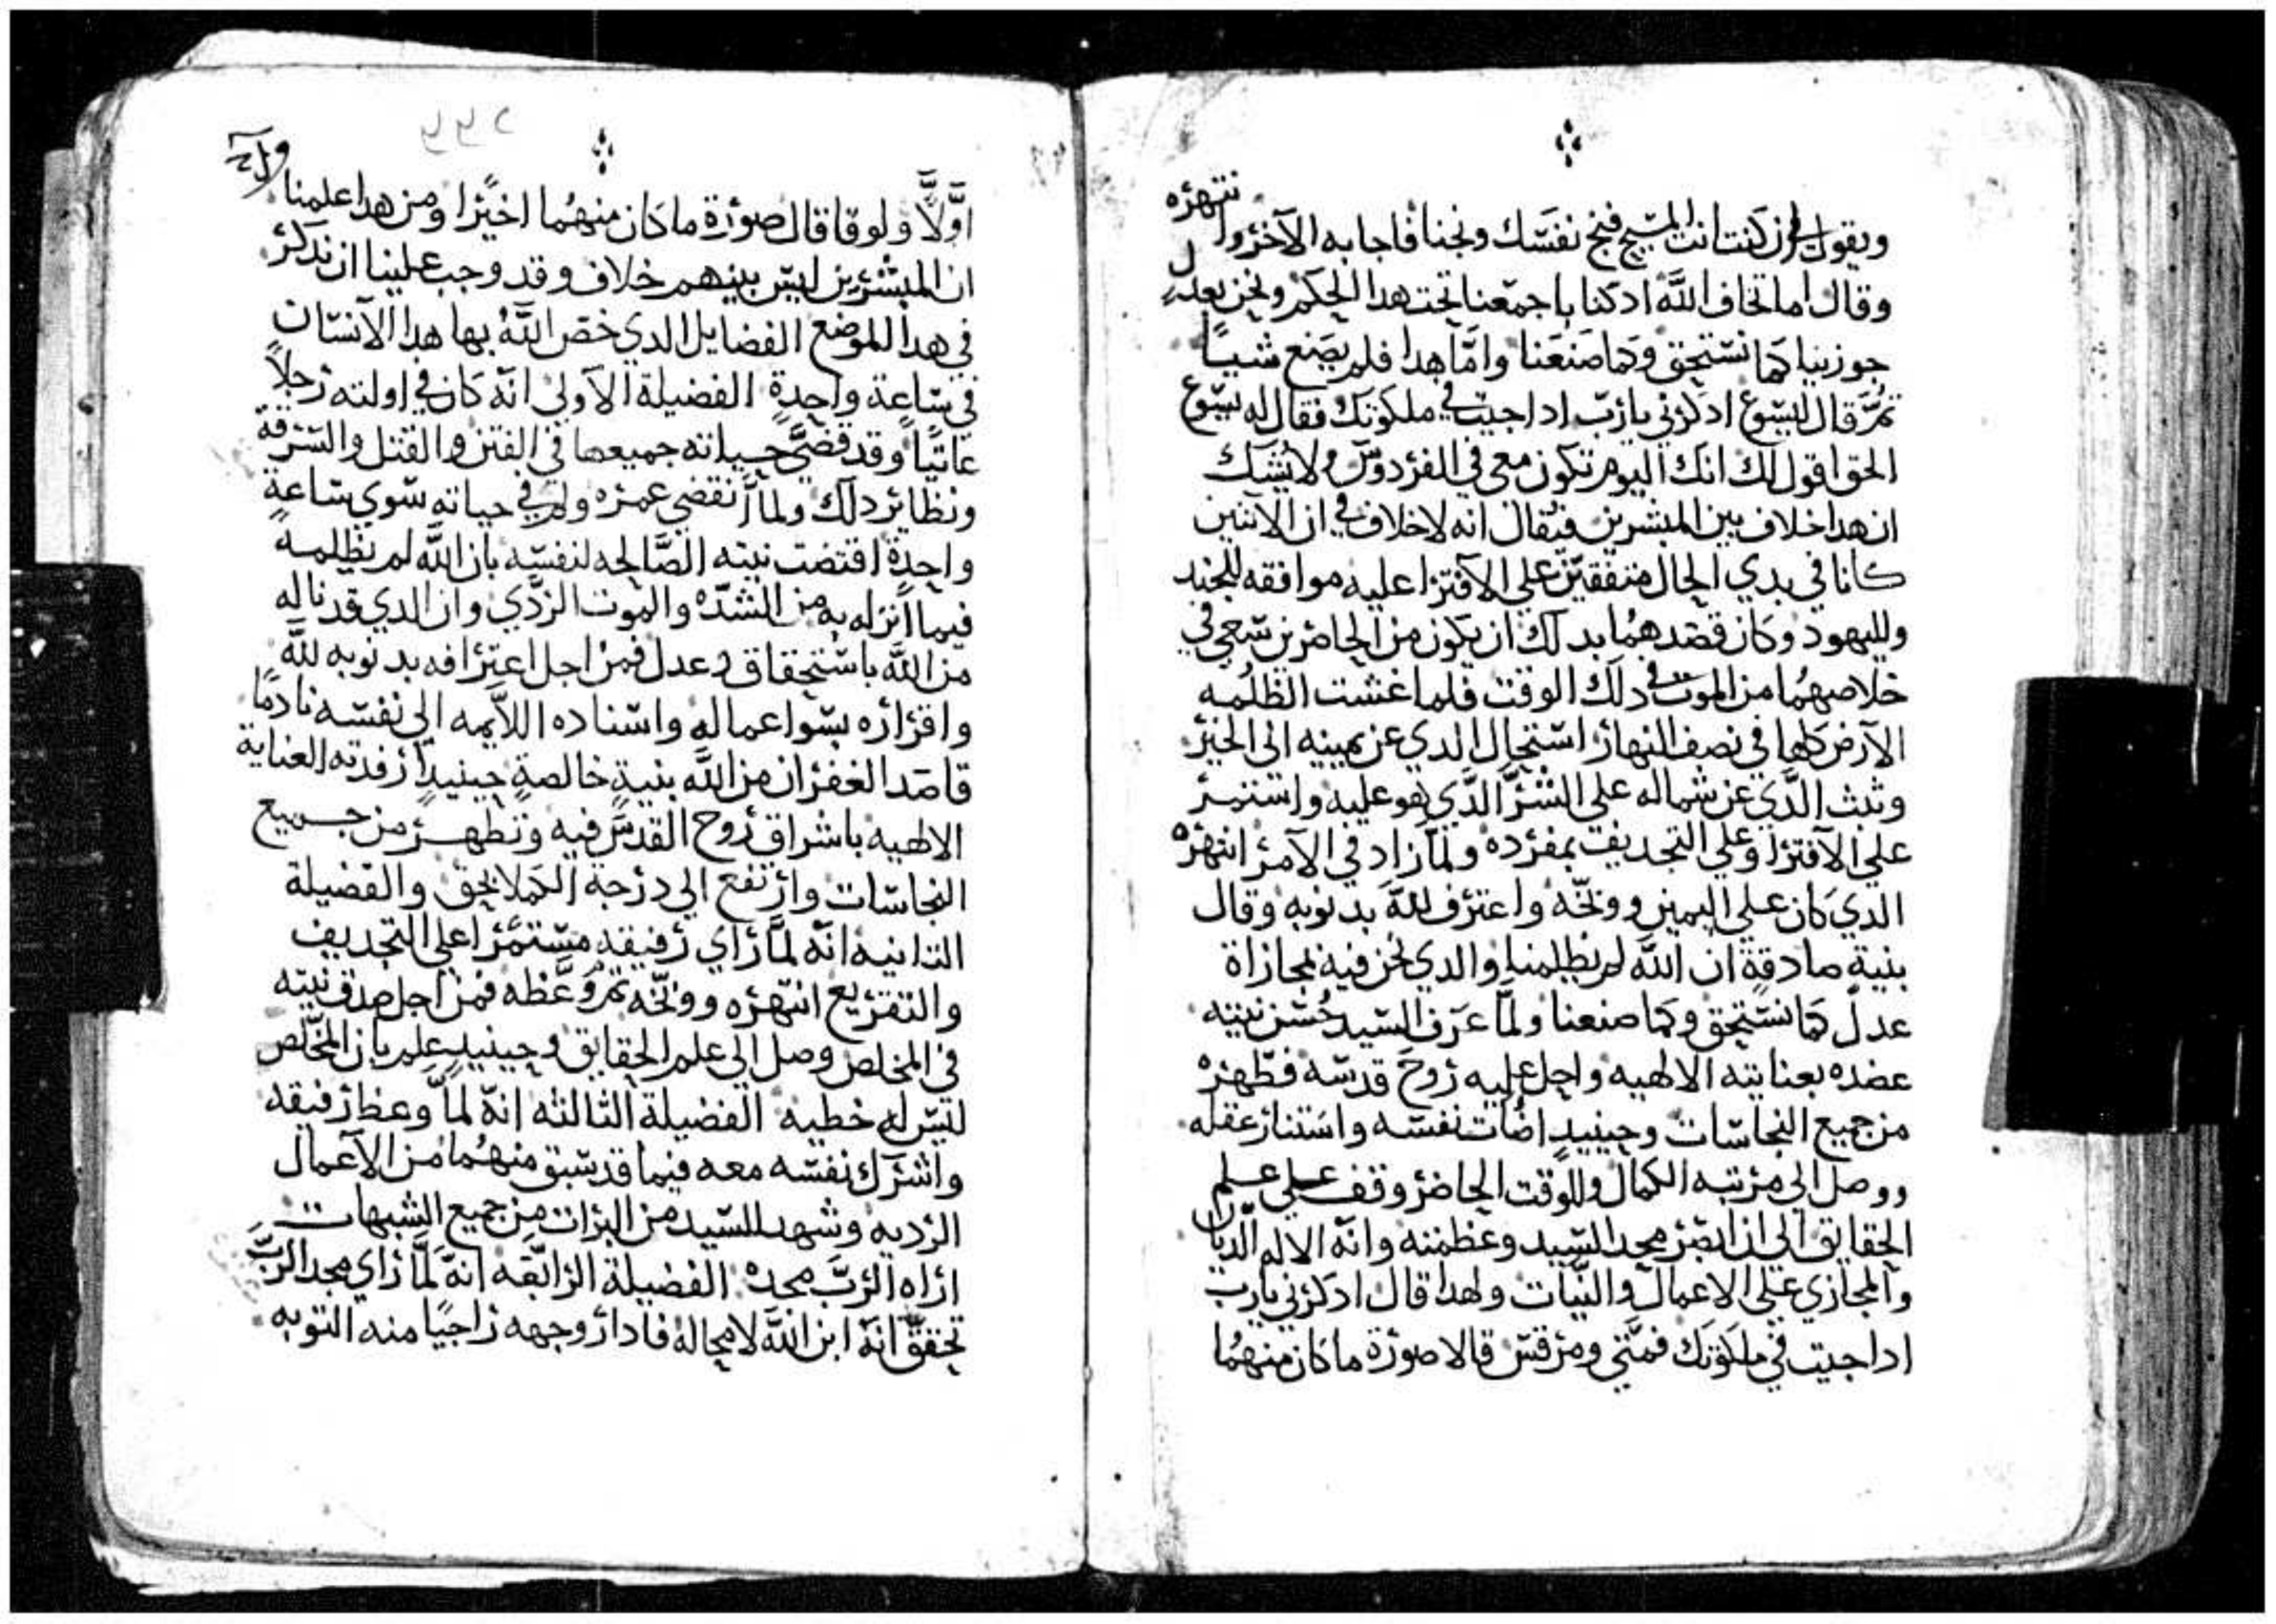 ويقول ان كنت انت المسيح فنج نفسك ونجنا فاجابه الآخر وانتهره
وقال اما تخاف اللَّه ادكنا باجمعنا تحت هدا الحكم ونحن بعدل
جوزينا كما نستحق وكما صنعنا وامَّا هدا فلم يصنع شيياً
تمَّ قال ليسوع ادكرني يارب ادا جيت في ملكوتك فقال له يسوع
الحق اقول لك انك اليوم تكون معي في الفردوس ولا يُشك
ان هدا خلاف بين المبشرين فيُقال انه لا خلاف في ان الاتنين
كانا في بدي الحال متفقين علي الآفترا عليه موافقه للجند
ولليهود وكان قصدهُما بدلك ان يكون من الحاضرين سعي في
خلاصهُما من الموت في دلك الوقت فلما غشت الظلُمه
الآرض كلها في نصف النهار استحال الدي عن يمينه الى الخير
وتبت الدَّي عن شماله على الشرَّ الدَّي هو عليه واستمر
علي الآفترا وعلي التجديف بمفرده ولمَّا زاد في الآمر انتهره
الدي كان علي اليمين ووبخّه واعترف للَّه بدنوبه وقال
بنيةٍ صادقةٍ ان اللَّه لم يظلمنا والدي نحن فيه مجازاة
عدل كما نستحق وكما صنعنا ولمَّا عرف السيد حُسن نيته
عضده بعنايته الالهيه واحل عليه روح قدسه فطهره
من جميع النجاسات وحينيدٍ اضُات نفسه واستنار عقله
ووصل الي مرتبه الكمال وللوقت الحاضر وقف علي علم
الحقايق الي ان ابصر مجد السيد وعظمته وانه الاله الديان
والمجازي علي الاعمال والنيات ولهدا قال ادكرني يارب
ادا جيت في ملكوتك فمتَّي ومرقس قالا صورة ما كان منهُما
اوَّلاً ولوقا قال صورة ما كان منهُما اخيرًا ومن هدا علمنا
ان المبشرين ليس بينهم خلاف وقد وجب علينا ان ندكر
في هدا الموضع الفضايل الدي خص اللَّه بها هدا الآنسان
في ساعة واحدةٍ الفضيلة الآولي انه كان في اولته رجلاً
عاتياً وقد قضيَّ حياته جميعها في الفتن والقتل والسرقة
ونظاير دلك ولما انقضي عمره ولم في حياته سوي ساعةٍ
واحدةٍ اقتضت نيته الصَّالحه لنفسه بان اللَّه لم يظلمه
فيما انزله به من الشدّه والموت الردّي وان الدي قد ناله
من اللَّه باستحقاق وعدل فمن اجل اعترافه بدنوبه للَّه
واقراره بسوا عماله واسناده اللاَّيمه الي نفسه نادمًا
قاصد الغفران من اللَّه بنيةٍ خالصةٍ حينيدٍ ارفدته العناية
الالهيه باشراق روح القدس فيه وتطهر من جميع
النجاسات وارتفع الي درجة الكملا بحق والفضيلة
التانيه انّه لمَّا راي رفيقه مستمرًا علي التجديف
والتقريع انتهره ووبخّه تم وعَّظه فمن اجل صدق نيته
في المخلص وصل الي علم الحقايق وحينيدٍ علم بان المخلّص
ليس له خطيه الفضيلة التالته انهّ لمَّا وعظ رفيقه
واشرك نفسه معه فيما قد سبق منهُما من الآعمال
الرديه وشهد للسيد من البرات من جميع الشبهات
اراه الرَّب مجده الفضيلة الرابّعه انهَّ لمَّا راي مجد الربَّ
تحققّ انهَّ ابن اللَّه لا محاله فادار وجهه راجيًا منه التوبه